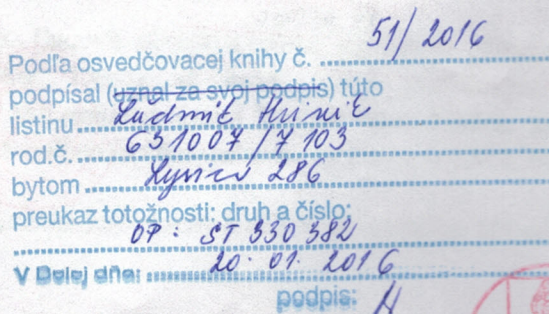 Podľa osvedčovacej knihy č. 51/2016
podpísal (uznal za svoj podpis) túto
listinu
rod.č. 631007/7103
bytom Lysica 286
preukaz totožnosti: druh a číslo:
OP: ST 330382
V Belej dňa: 20. 01. 2016
podpis: